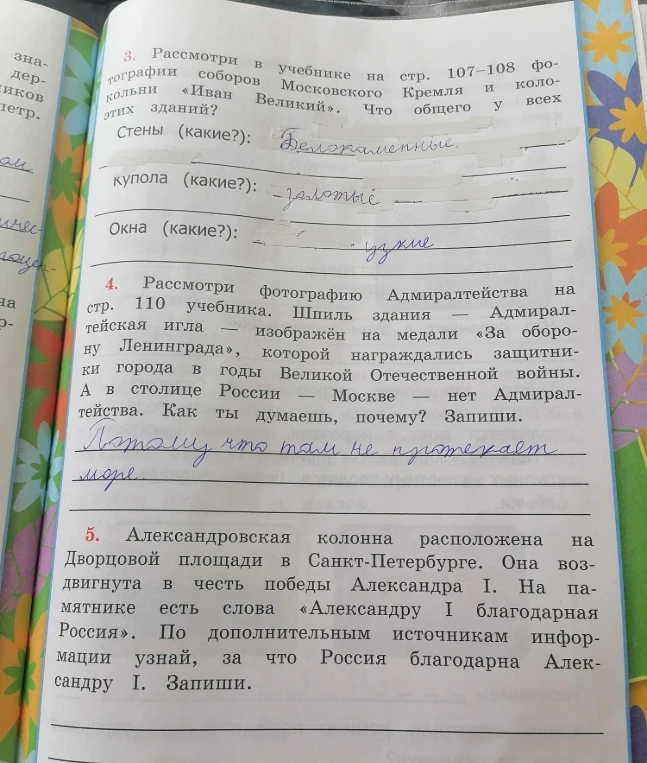 зна-
дер-
иков
петр.
3. Рассмотри в учебнике на стр. 107–108 фо-
тографии соборов Московского Кремля и коло-
кольни «Иван Великий». Что общего у всех
этих зданий?
Стены (какие?): Белокаменные.
купола (какие?): золотые
Окна (какие?): узкие
4. Рассмотри фотографию Адмиралтейства на
стр. 110 учебника. Шпиль здания — Адмирал-
тейская игла — изображён на медали «За оборо-
ну Ленинграда», которой награждались защитни-
ки города в годы Великой Отечественной войны.
А в столице России — Москве — нет Адмирал-
тейства. Как ты думаешь, почему? Запиши.
Потому что там не протекает
море.
5. Александровская колонна расположена на
Дворцовой площади в Санкт-Петербурге. Она воз-
двигнута в честь победы Александра I. На па-
мятнике есть слова «Александру I благодарная
Россия». По дополнительным источникам инфор-
мации узнай, за что Россия благодарна Алек-
сандру I. Запиши.